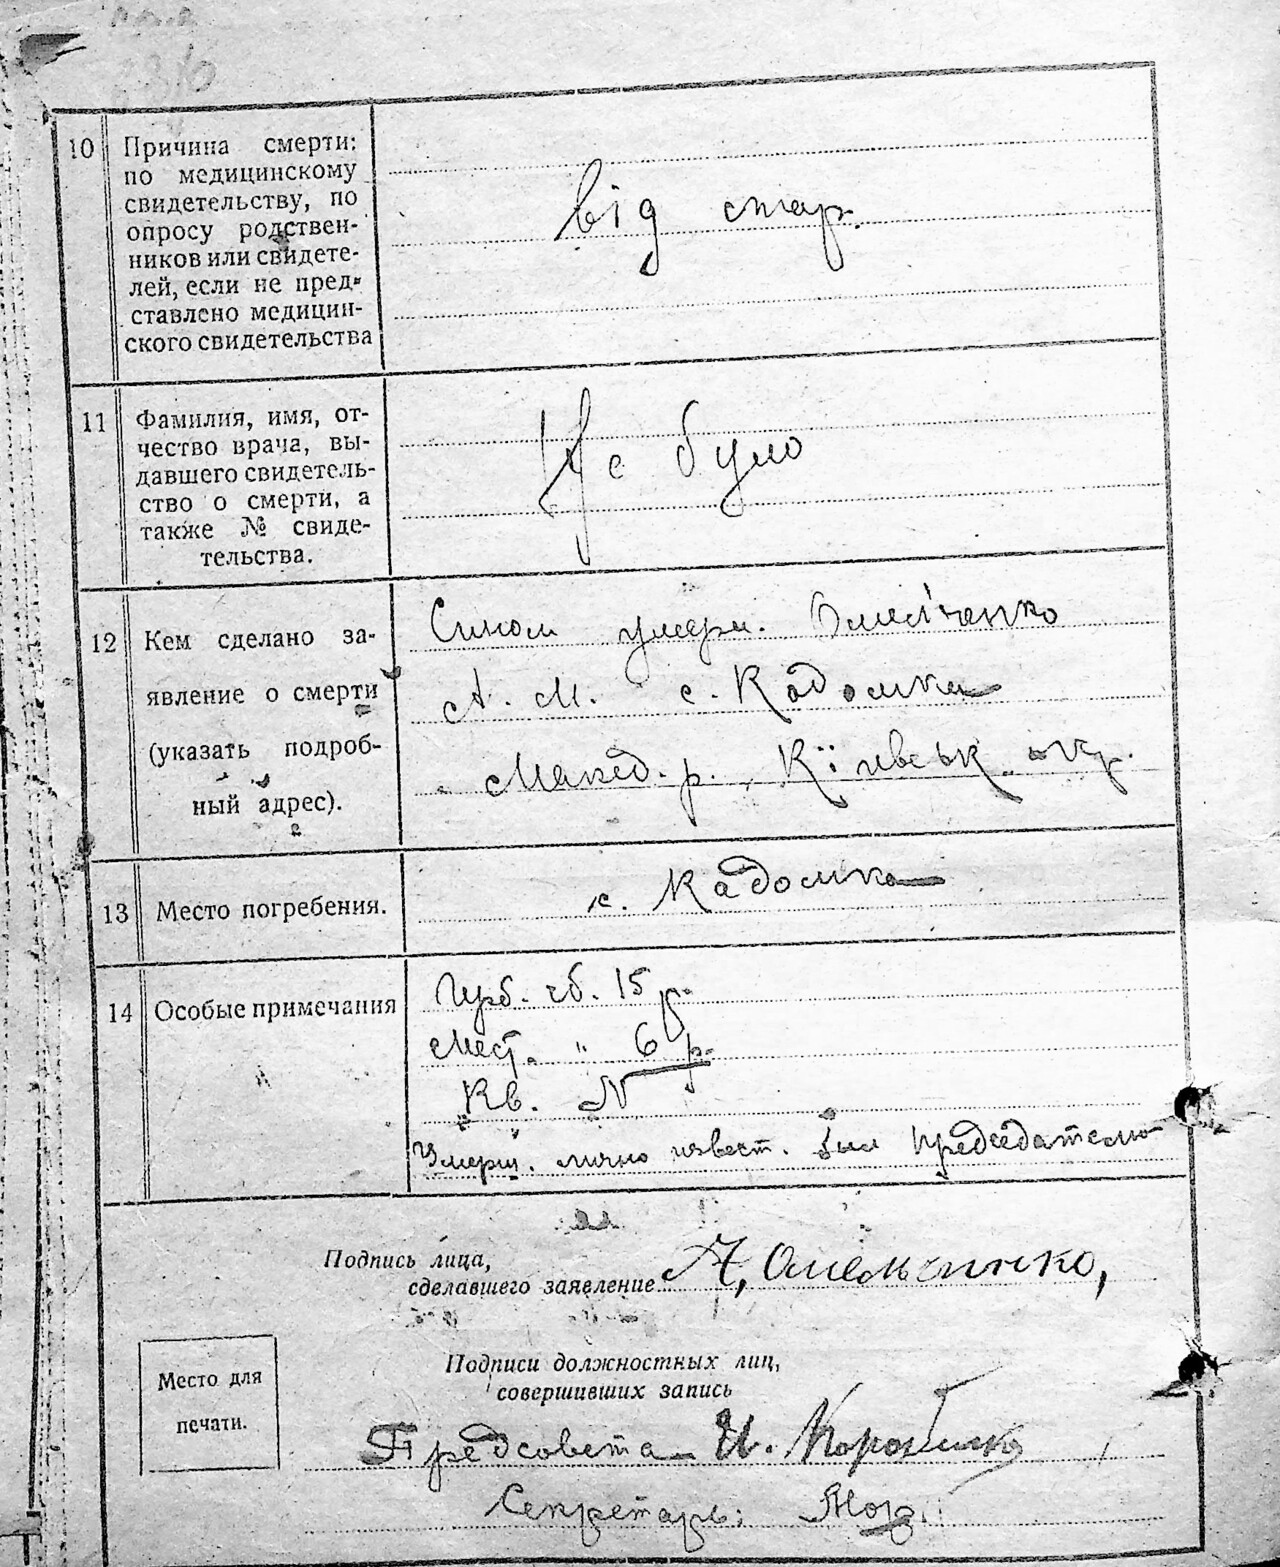 10 Причина смерти:
по медицинскому
свидетельству, по
опросу родствен-
ников или свидете-
лей, если не пред-
ставлено медицин-
ского свидетельства
від стар.
11 Фамилия, имя, от-
чество врача, вы-
давшего свидетель-
ство о смерти, а
также № свиде-
тельства.
Не було
12 Кем сделано за-
явление о смерти
(указать подроб-
ный адрес).
Сином умерш. Омел'ченко
А. М. с. Кадомка
Макед. р. Київськ. окр.
13 Место погребения.
с. Кадомка
14 Особые примечания
Герб. сб. 15 р.
Мест. " 6 р.
Кв. N
Умерш. лично извест. был председателю
Подпись лица,
сделавшего заявление А, Омельченко,
Место для
печати.
Подписи должностных лиц,
совершивших запись
Предсовета И.
Секретарь: